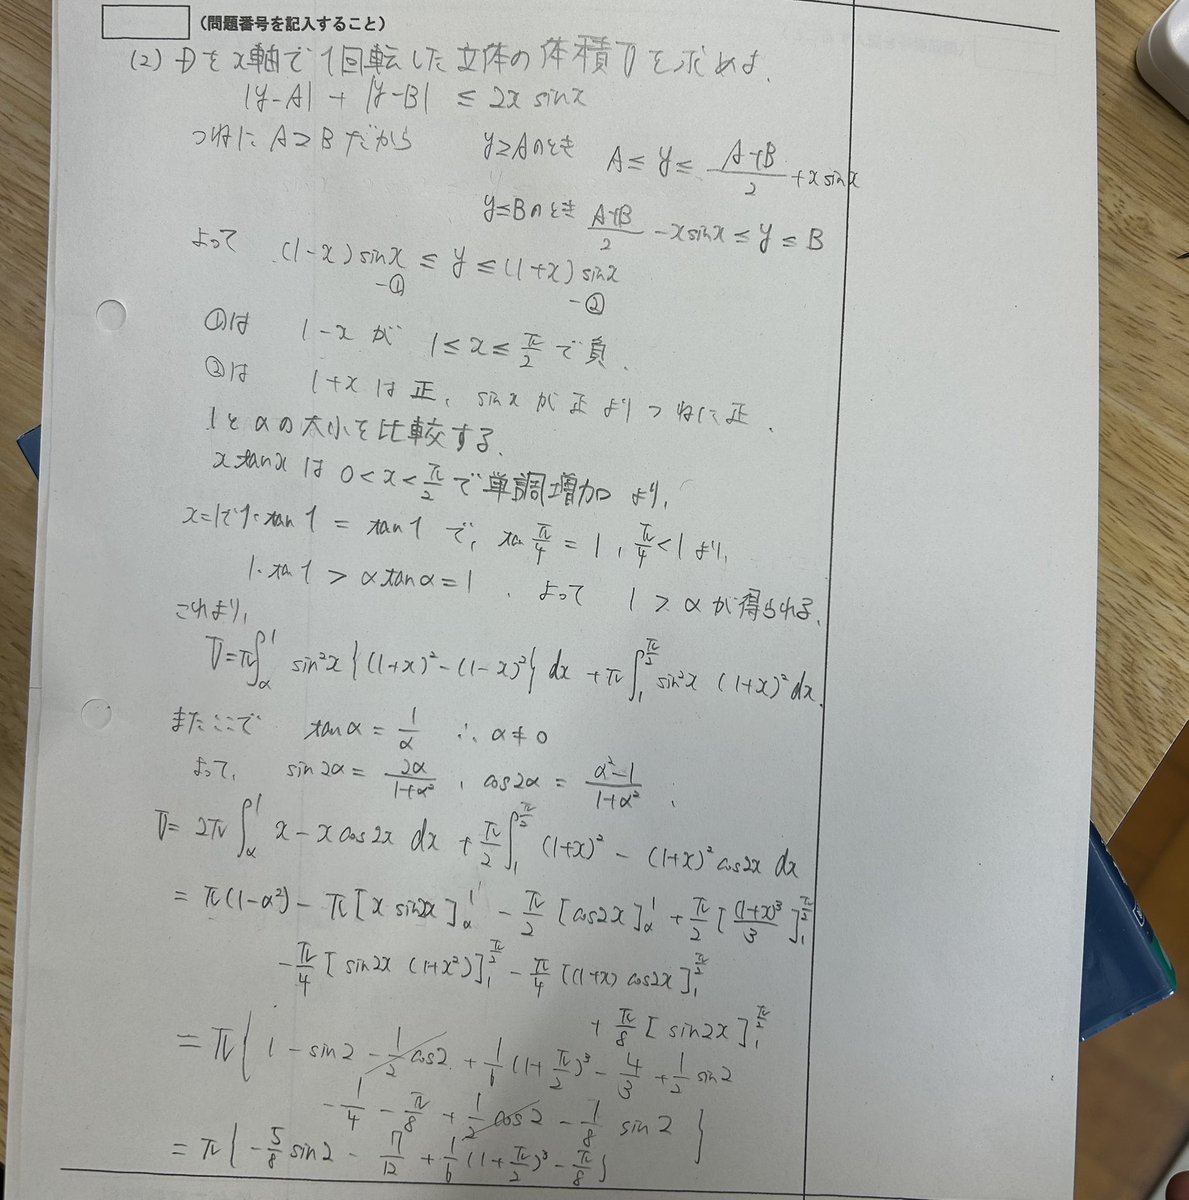 (問題番号を記入すること)
(2) Dをx軸で1回転した立体の体積Vを求めよ.
|y-A| + |y-B| ≤ 2x sinx
つねにA≥Bだから y≥Aのとき A ≤ y ≤ (A+B)/2 + x sinx
y≤Bのとき (A+B)/2 - x sinx ≤ y ≤ B
よって (1-x) sinx ≤ y ≤ (1+x) sinx
-① -②
①は 1-x が 1 ≤ x ≤ π/2 で負.
②は 1+x は正, sinx が正よりつねに正.
1とαの大小を比較する.
x tanx は 0 < x < π/2 で単調増加より,
x=1で1・tan1 = tan1 で, tan π/4 = 1, π/4 < 1 より,
1・tan1 > α tanα = 1. よって 1 > α が得られる.
これより,
V = π∫_α^1 sin²x {(1+x)² - (1-x)²} dx + π∫_1^{π/2} sin²x (1+x)² dx.
またここで tanα = 1/α ∴ α ≠ 0
よって, sin2α = 2α/(1+α²), cos2α = (α²-1)/(1+α²),
V = 2π∫_α^1 x - x cos2x dx + π/2 ∫_1^{π/2} (1+x)² - (1+x)² cos2x dx
= π(1-α²) - π[x sin2x]_α^1 - π/2 [cos2x]_α^1 + π/2 [(1+x)³/3]_1^{π/2}
- π/4 [sin2x (1+x²)]_1^{π/2} - π/4 [(1+x) cos2x]_1^{π/2}
+ π/8 [sin2x]_1^{π/2}
= π{ 1 - sin2 - 1/2 cos2 + 1/6 (1+π/2)³ - 4/3 + 1/2 sin2
- 1/4 - π/8 + 1/2 cos2 - 1/8 sin2 }
= π{ -5/8 sin2 - 7/12 + 1/6 (1+π/2)³ - π/8 }